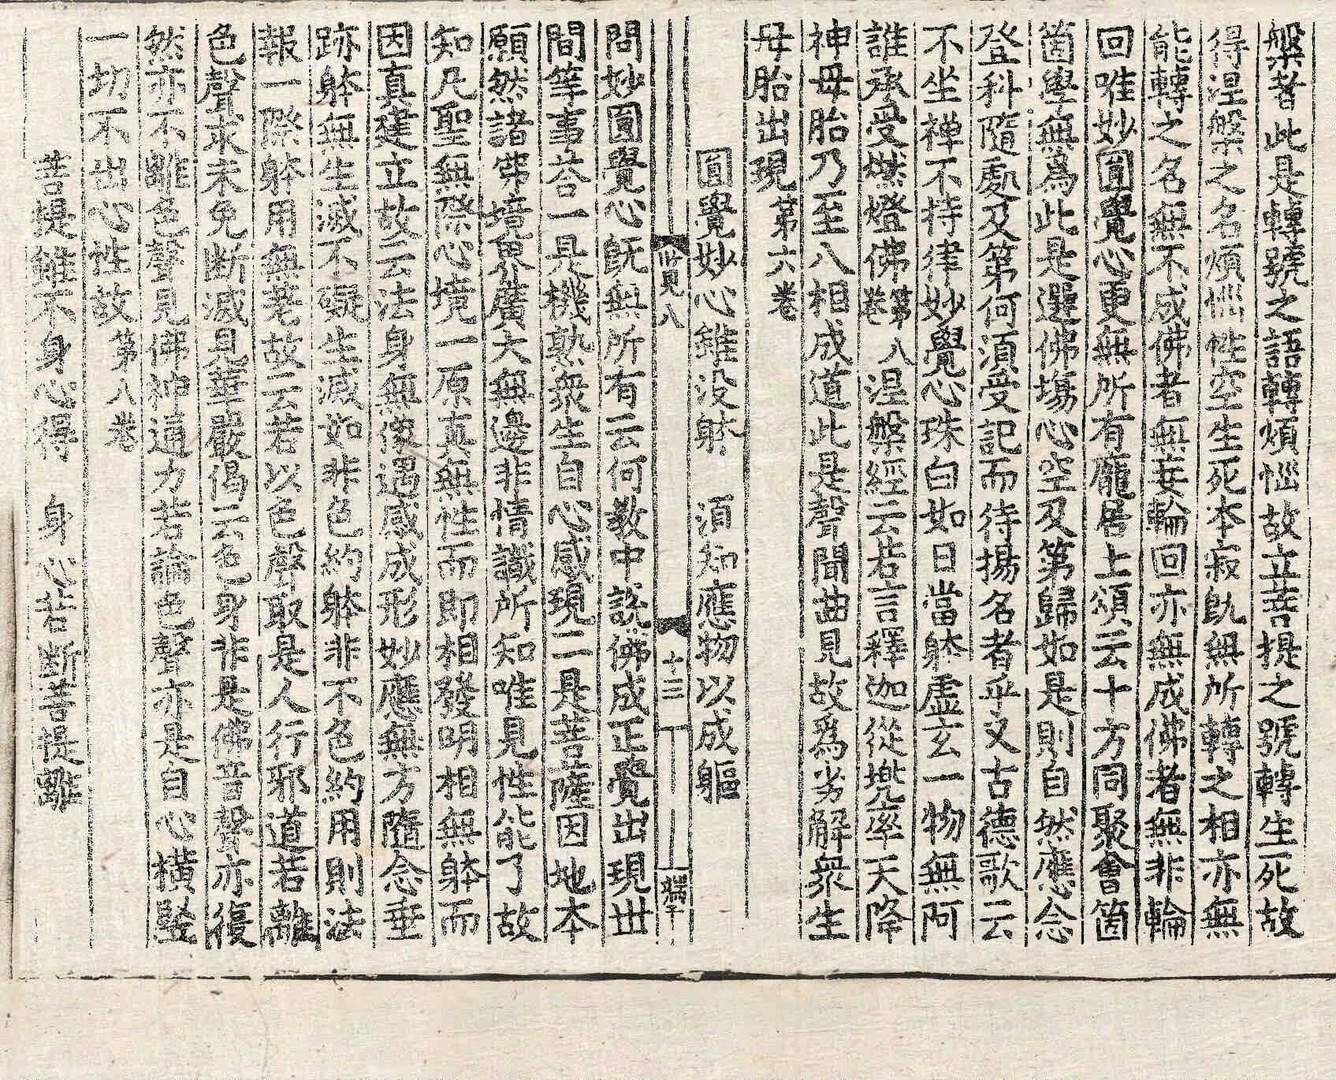 槃者此是轉號之語轉煩惱故立菩提之號轉生死故
得涅槃之名煩惱性空生死本寂旣無所轉之相亦無
能轉之名無不成佛者無非輪回亦無成佛者無非輪
回唯妙圎覺心更無所有龐居士頌云十方同聚會箇
箇學無為此是選佛塲心空及第歸如是則自然應念
登科隨處及第何須受記而待揚名者乎又古德歌云
不坐禅不持律妙覺心珠白如日當躰虛玄一物無阿
誰承受燃燈佛第八卷涅槃經云若言釋迦從兠率天降
神母胎乃至八相成道此是聲聞曲見故爲劣解衆生
母胎出現第六卷
圎覺妙心雖没躰 須知應物以成軀
八 十三
問妙圎覺心旣無所有云何教中說佛成正覺出現世
間等事荅一是機熟衆生自心感現二是菩薩因地本
願然諸佛境界廣大無邊非情識所知唯見性能了故
知凡聖無際心境一原真無性而即相發明相無躰而
因真建立故云法身無像遇感成形妙應無方隨念垂
跡躰無生滅不礙生滅如非色約躰非不色約用則法
報一際躰用無差故云若以色聲取是人行邪道若離
色聲求未免斷滅見華嚴偈云色身非是佛音聲亦復
然亦不離色聲見佛神通力若論色聲亦是自心橫竪
一切不出心性故第八卷
菩提雖不身心得 身心若断菩提離